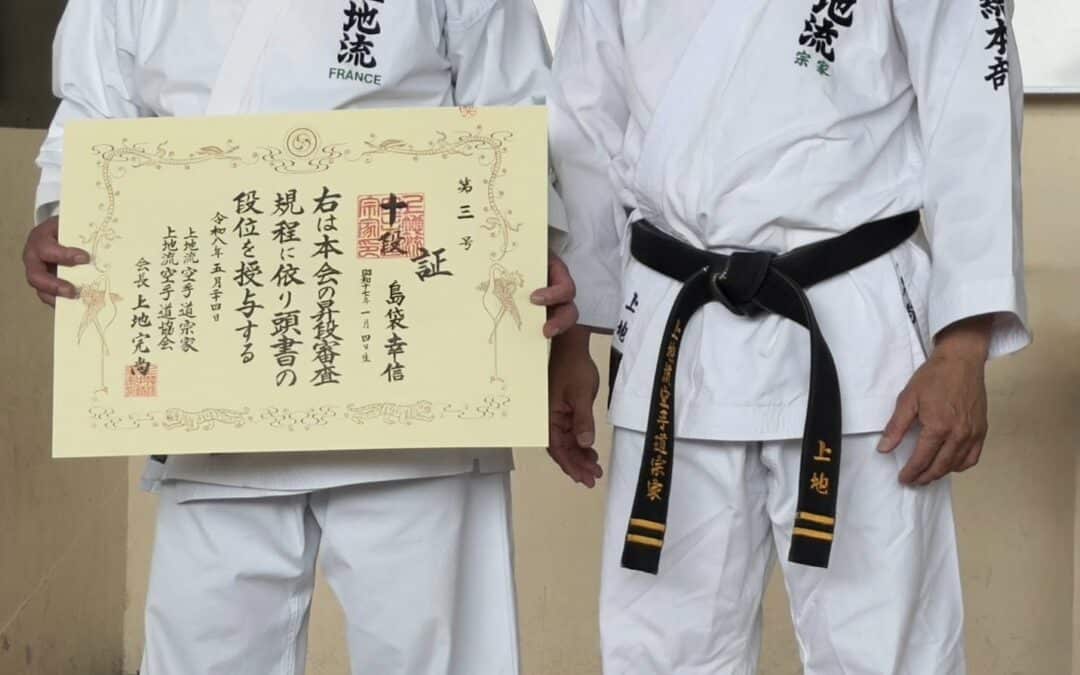 地流
FRANCE
地流
宗家
総本部
第三号
証
十段
島袋幸信
昭和十七年一月四日生
右は本会の昇段審査
規程に依り頭書の
段位を授与する
令和八年五月二十四日
上地流空手道宗家
上地流空手道協会
会長 上地完尚
上地
上地流空手道宗家
上地